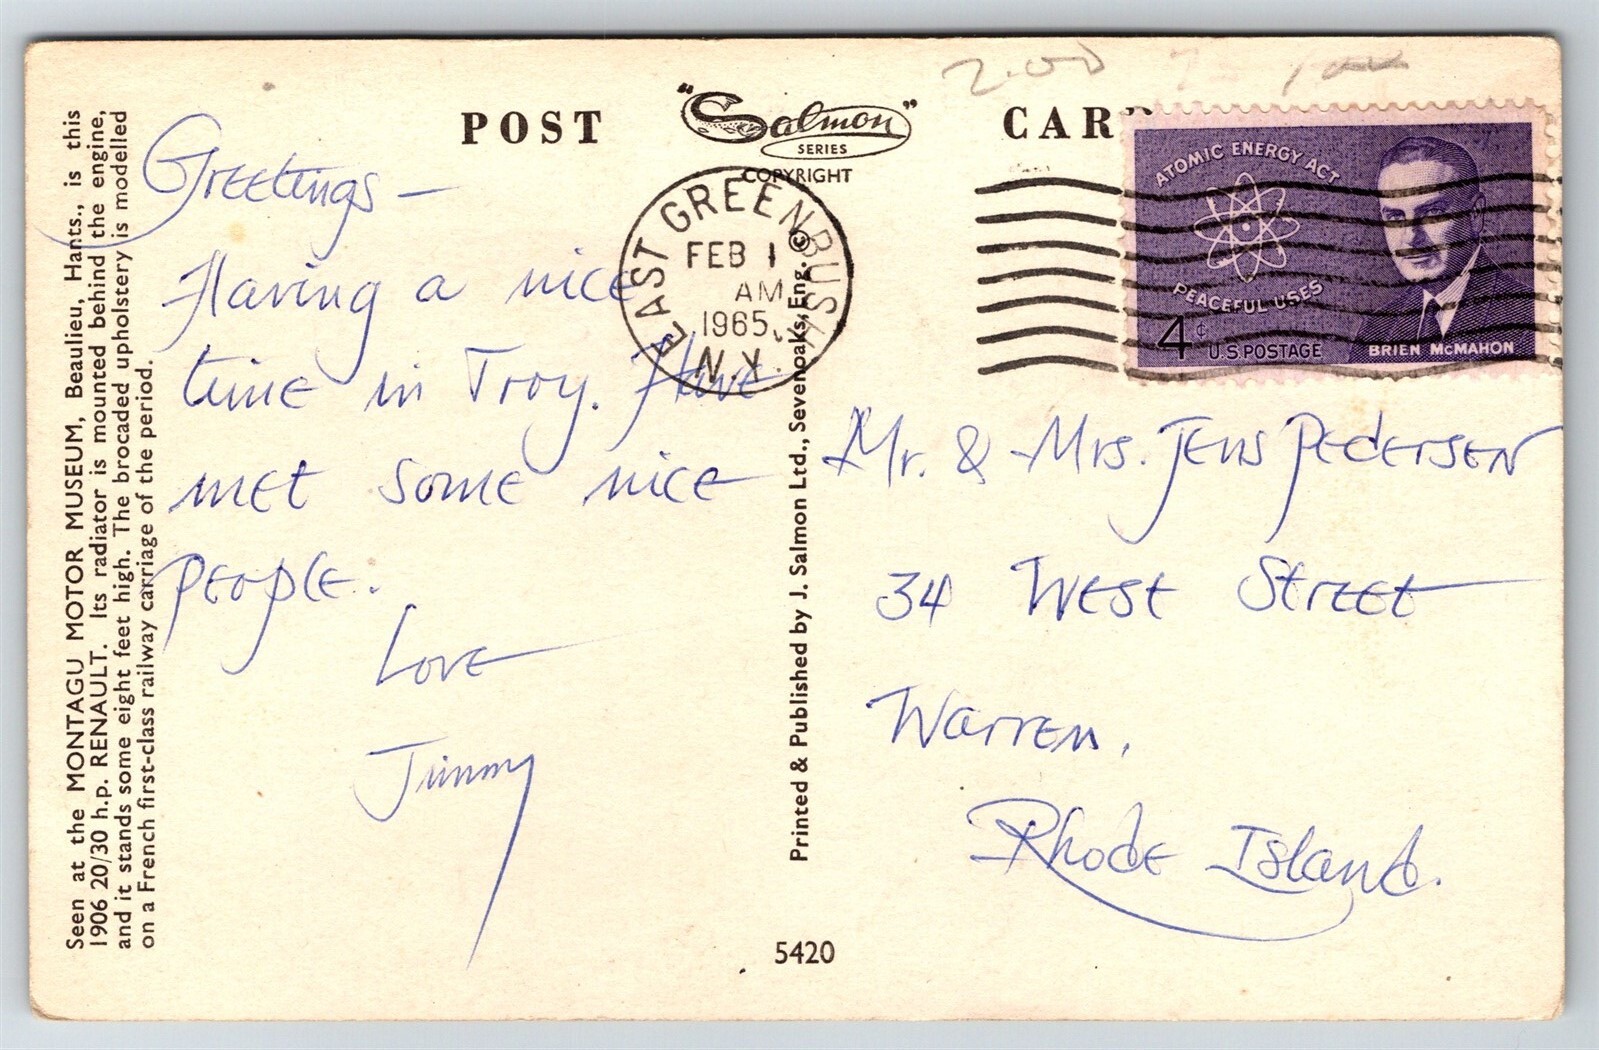 2.00
POST
"Salmon"
SERIES
COPYRIGHT
CARD
Seen at the MONTAGU MOTOR MUSEUM, Beaulieu, Hants., is this
1906 20/30 h.p. RENAULT. Its radiator is mounted behind the engine,
and it stands some eight feet high. The brocaded upholstery is modelled
on a French first-class railway carriage of the period.
Greetings —
Having a nice
time in Troy. Have
met some nice
people.
Love
Jimmy
EAST GREENBUSH
FEB 1
AM
1965
N.Y.
Printed & Published by J. Salmon Ltd., Sevenoaks, Eng. ©
5420
ATOMIC ENERGY ACT
PEACEFUL USES
4¢
U.S POSTAGE
BRIEN McMAHON
Mr. & Mrs. Jens Pedersen
34 West Street
Warren,
Rhode Island.